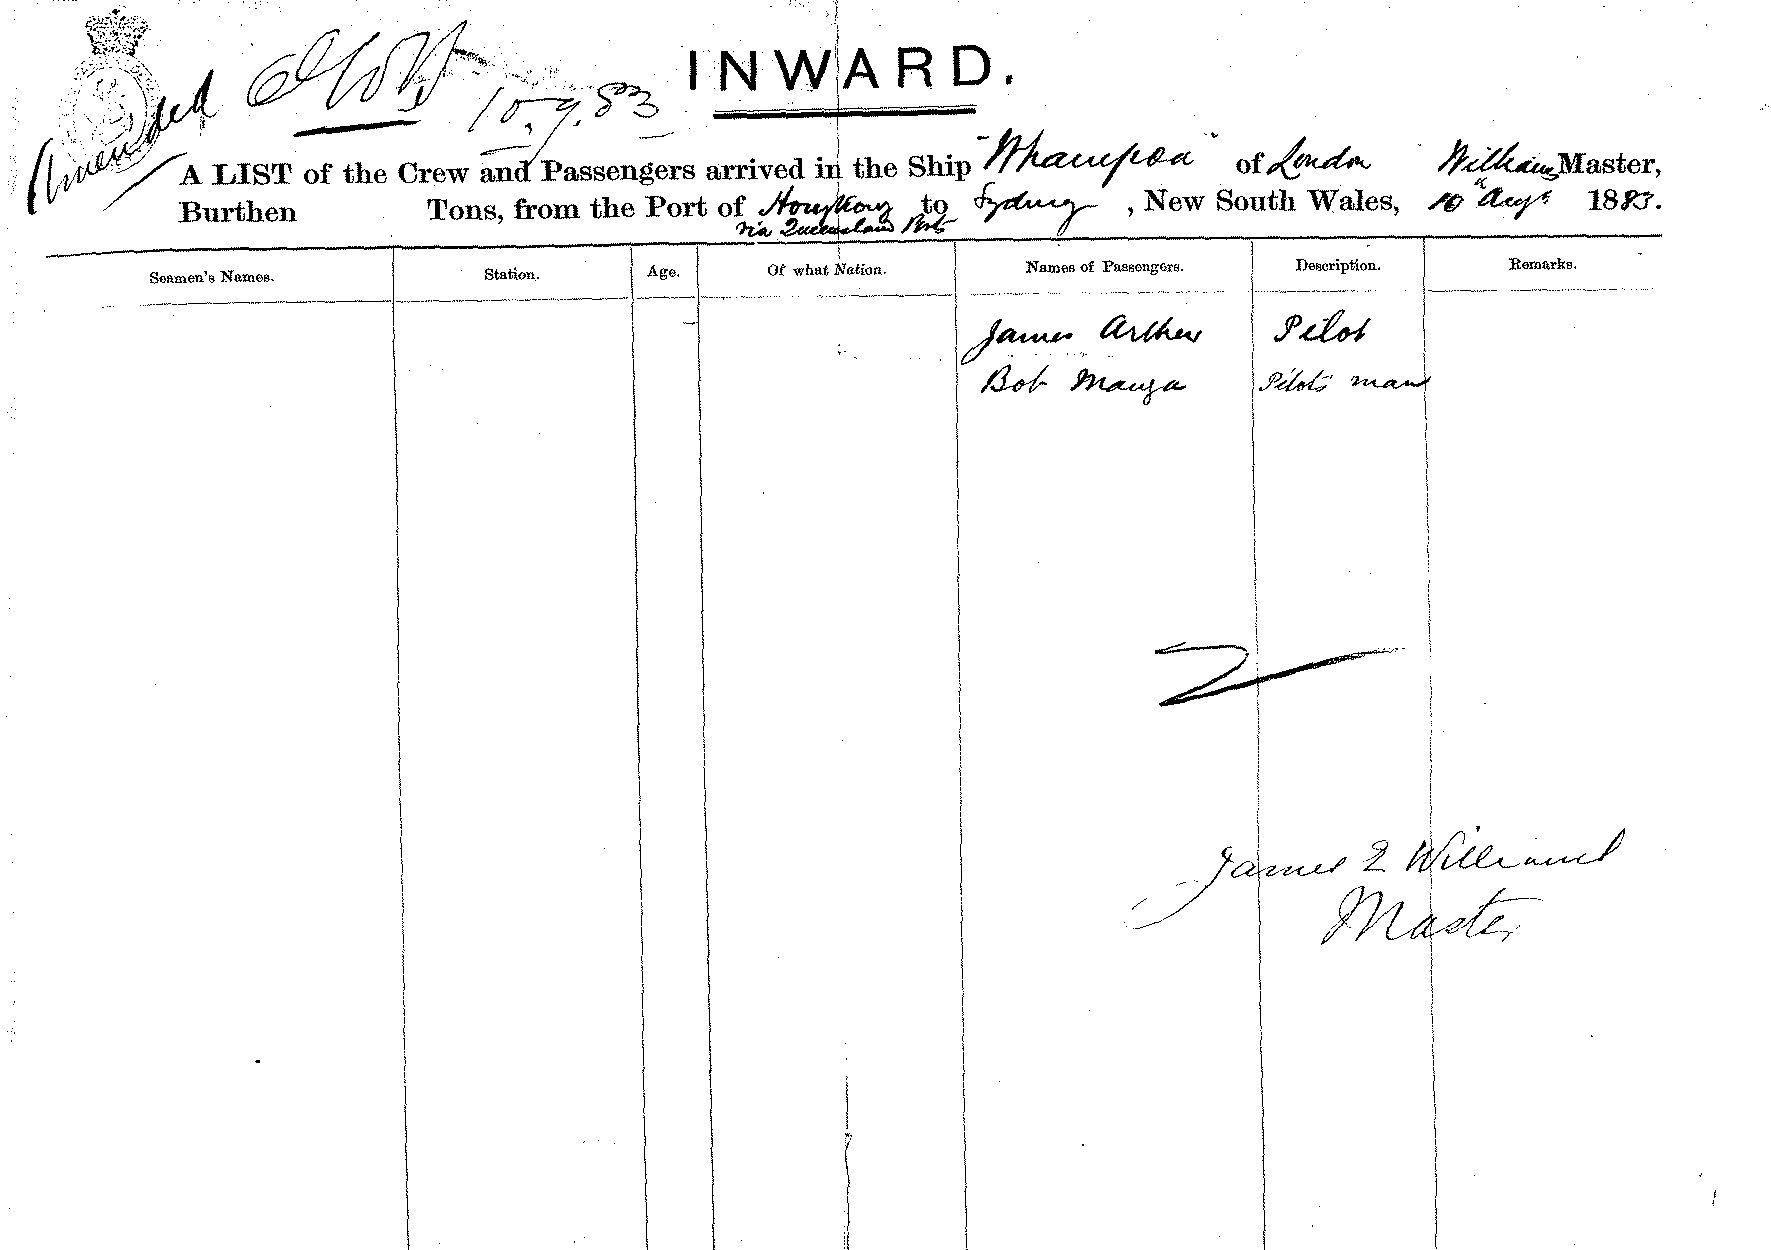 INWARD.
Amended
10.9.83
A LIST of the Crew and Passengers arrived in the Ship "Whampoa" of London Williams Master,
Burthen Tons, from the Port of HongKong to Sydney, New South Wales, 10th Augt 1883.
via Queensland Ports
Seamen's Names. Station. Age. Of what Nation. Names of Passengers. Description. Remarks.
James Arthur Pilot
Bob Manga Pilots man
James E Williams
Master